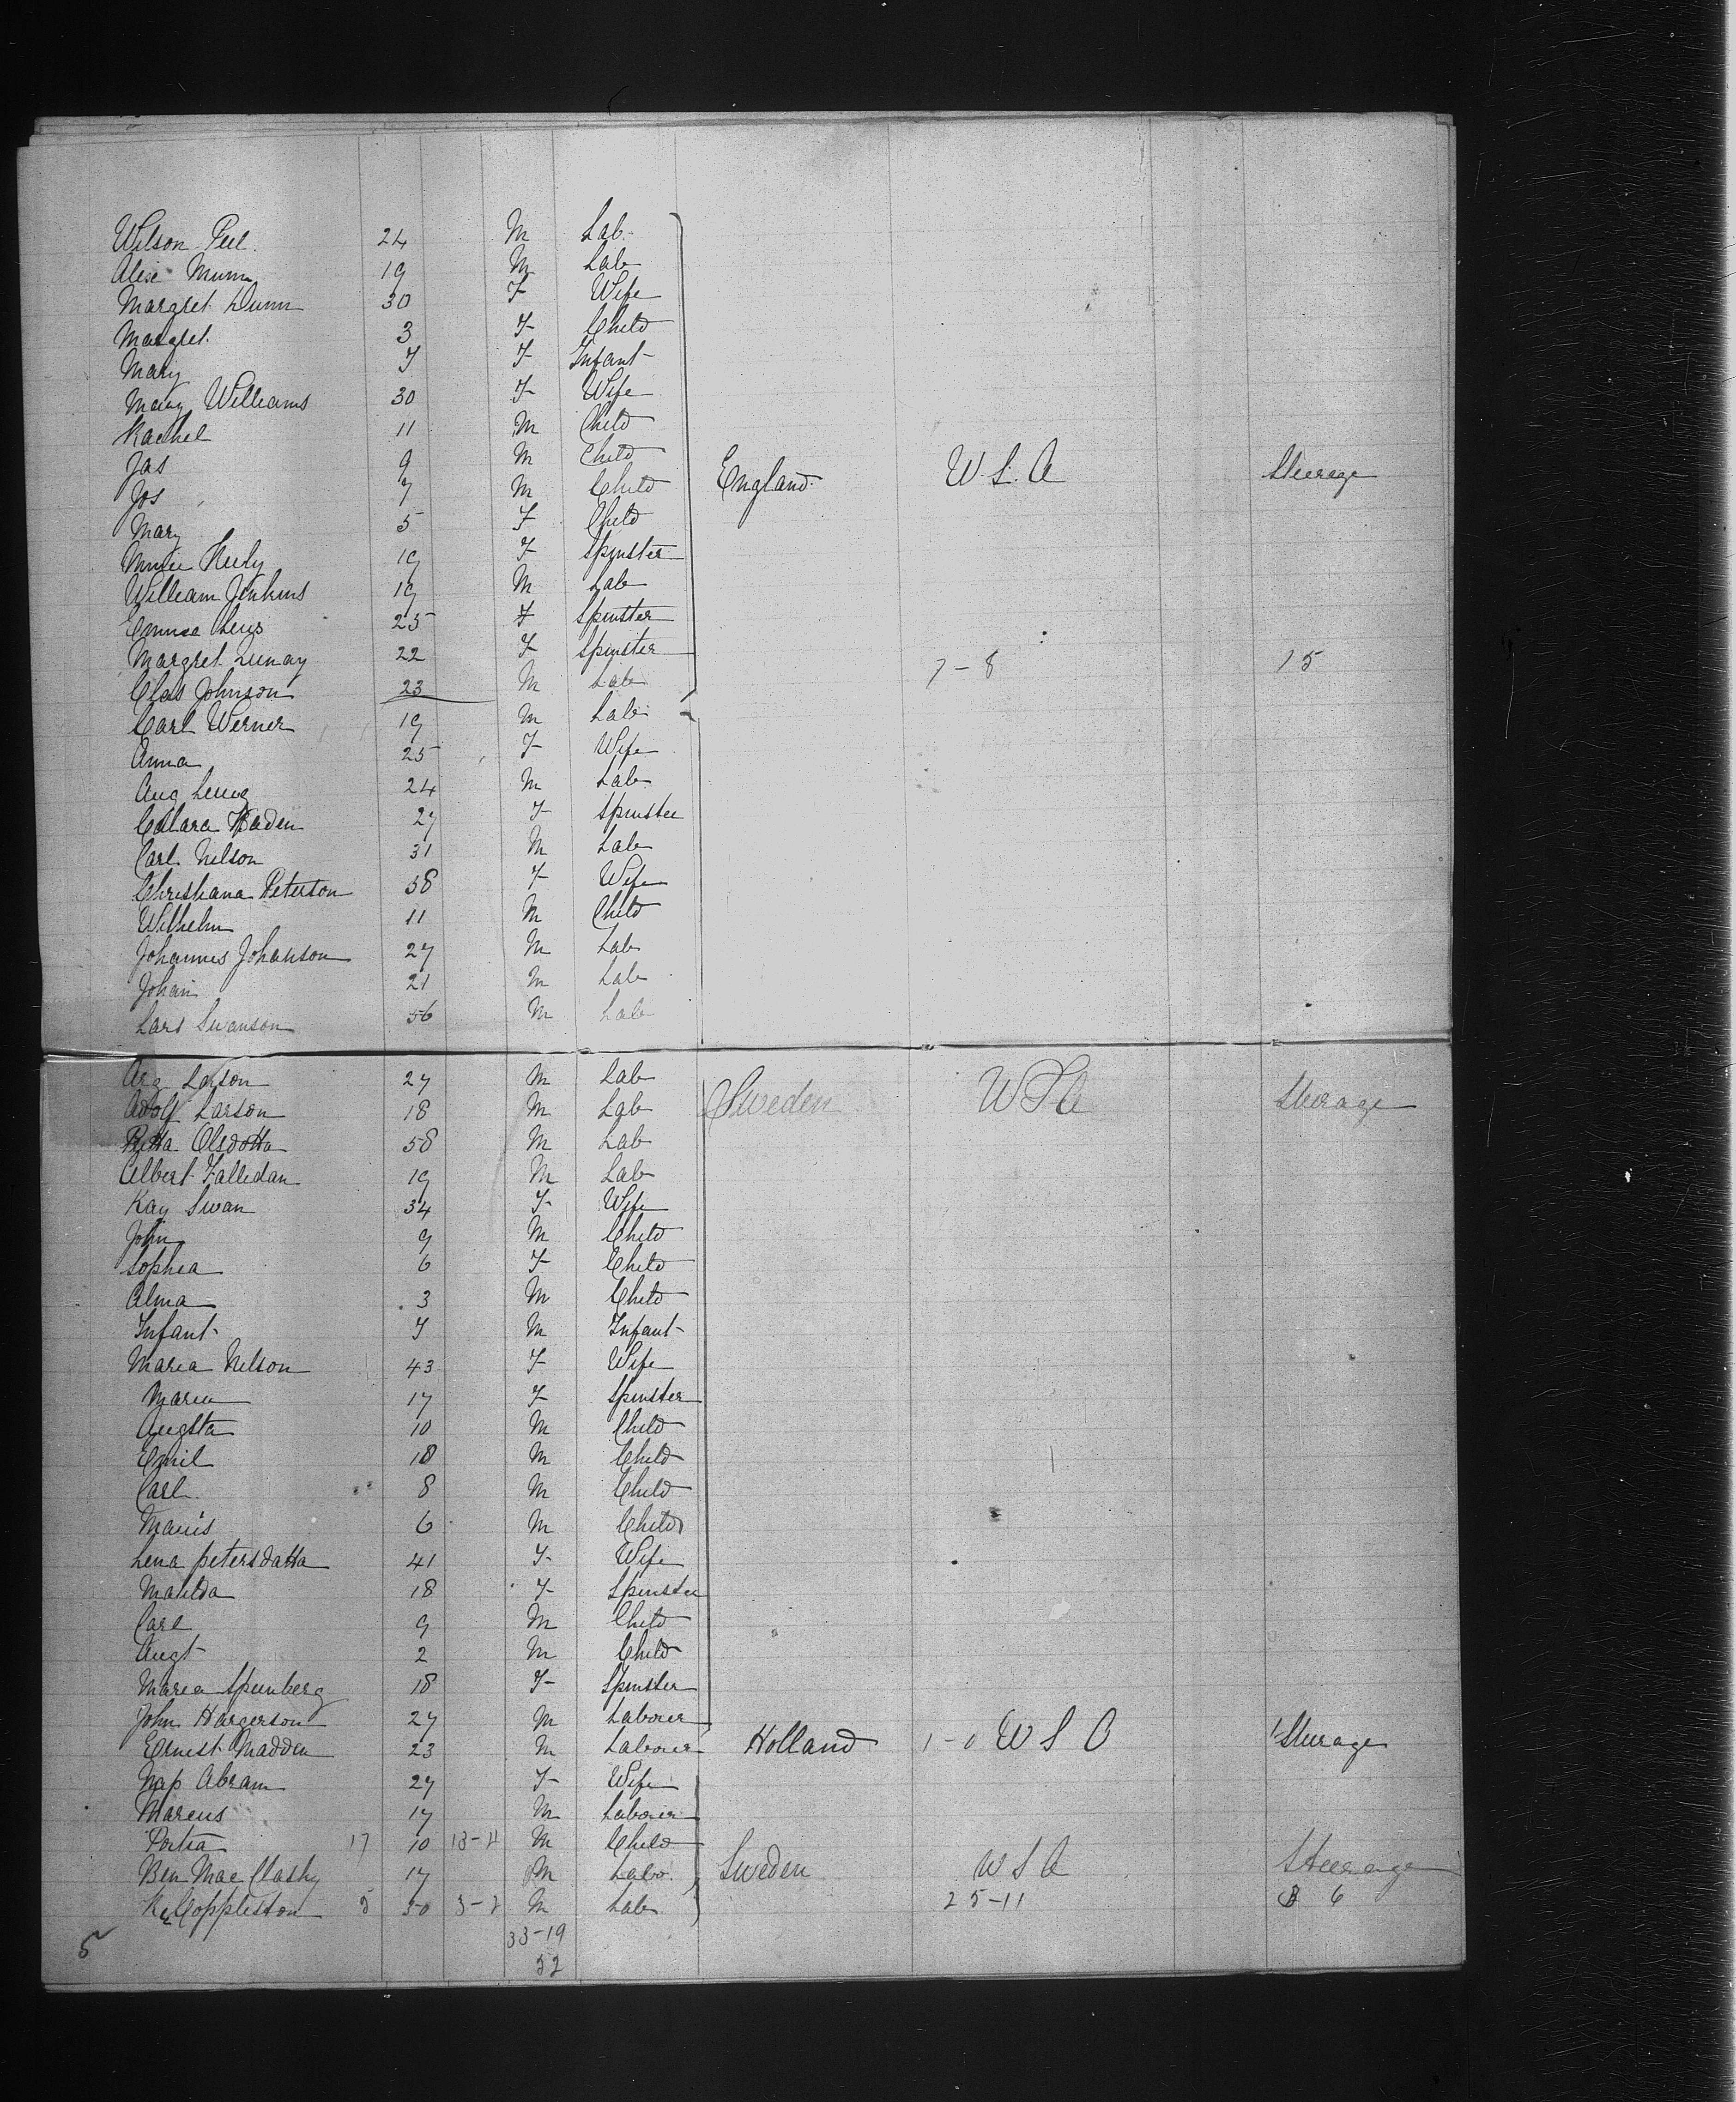 Wilson Peel 24 M Lab.
Alex Munn 19 M Lab
Margret Dunn 30 F Wife
Margret 3 F Child
Mary F Infant
Mary Williams 30 F Wife
Rachel 11 M Child
Jas 9 M Child
Jos 7 M Child England W.S.A Steerage
Mary 5 F Child
19 F Spinster
William Jenkins 19 M Lab
25 F Spinster
Margret 22 F Spinster 7-8 15
Johnson 23 M Lab
Carl Werner 19 M Lab
Anna 25 F Wife
Aug 24 M Lab
27 F Spinster
Carl Nelson 31 M Lab
Christiana Peterson 58 F Wife
Wilhelm 11 M Child
Johannes Johanson 27 M Lab
Johan 21 M Lab
Lars Swanson 56 M Lab
Larson 27 M Lab
Adolf Larson 18 M Lab Sweden W S A Steerage
Olsdotta 58 M Lab
Albert Falledan 19 M Lab
Kay Swan 34 F Wife
John 9 M Child
Sophia 6 F Child
Alma 3 M Child
Infant M Infant
Maria Nelson 43 F Wife
Maria 17 F Spinster
Augsta 10 M Child
Emil M Child
Carl 8 M Child
6 M Child
Lena petersdatta 41 F Wife
Matilda 18 F Spinster
Carl 9 M Child
Augt 2 M Child
Maria 18 F Spinster
John Hargerson 27 M Laborer
Ernest Madden 23 M Laborer Holland 1-0 W S A 1 Steerage
Abram 27 F Wife
Marcus 17 M Laborer
17 10 13-4 M Child
Ben Mac Clasky 17 M Labo. Sweden W S A Steerage
Coppleston 5 30 3-2 M Lab 25-11 6
5 33-19
52